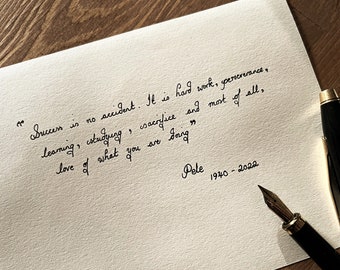 “ Success is no accident. It is hard work, perseverance,
learning, studying, sacrifice and most of all,
love of what you are doing ”
Pele 1940 - 2022